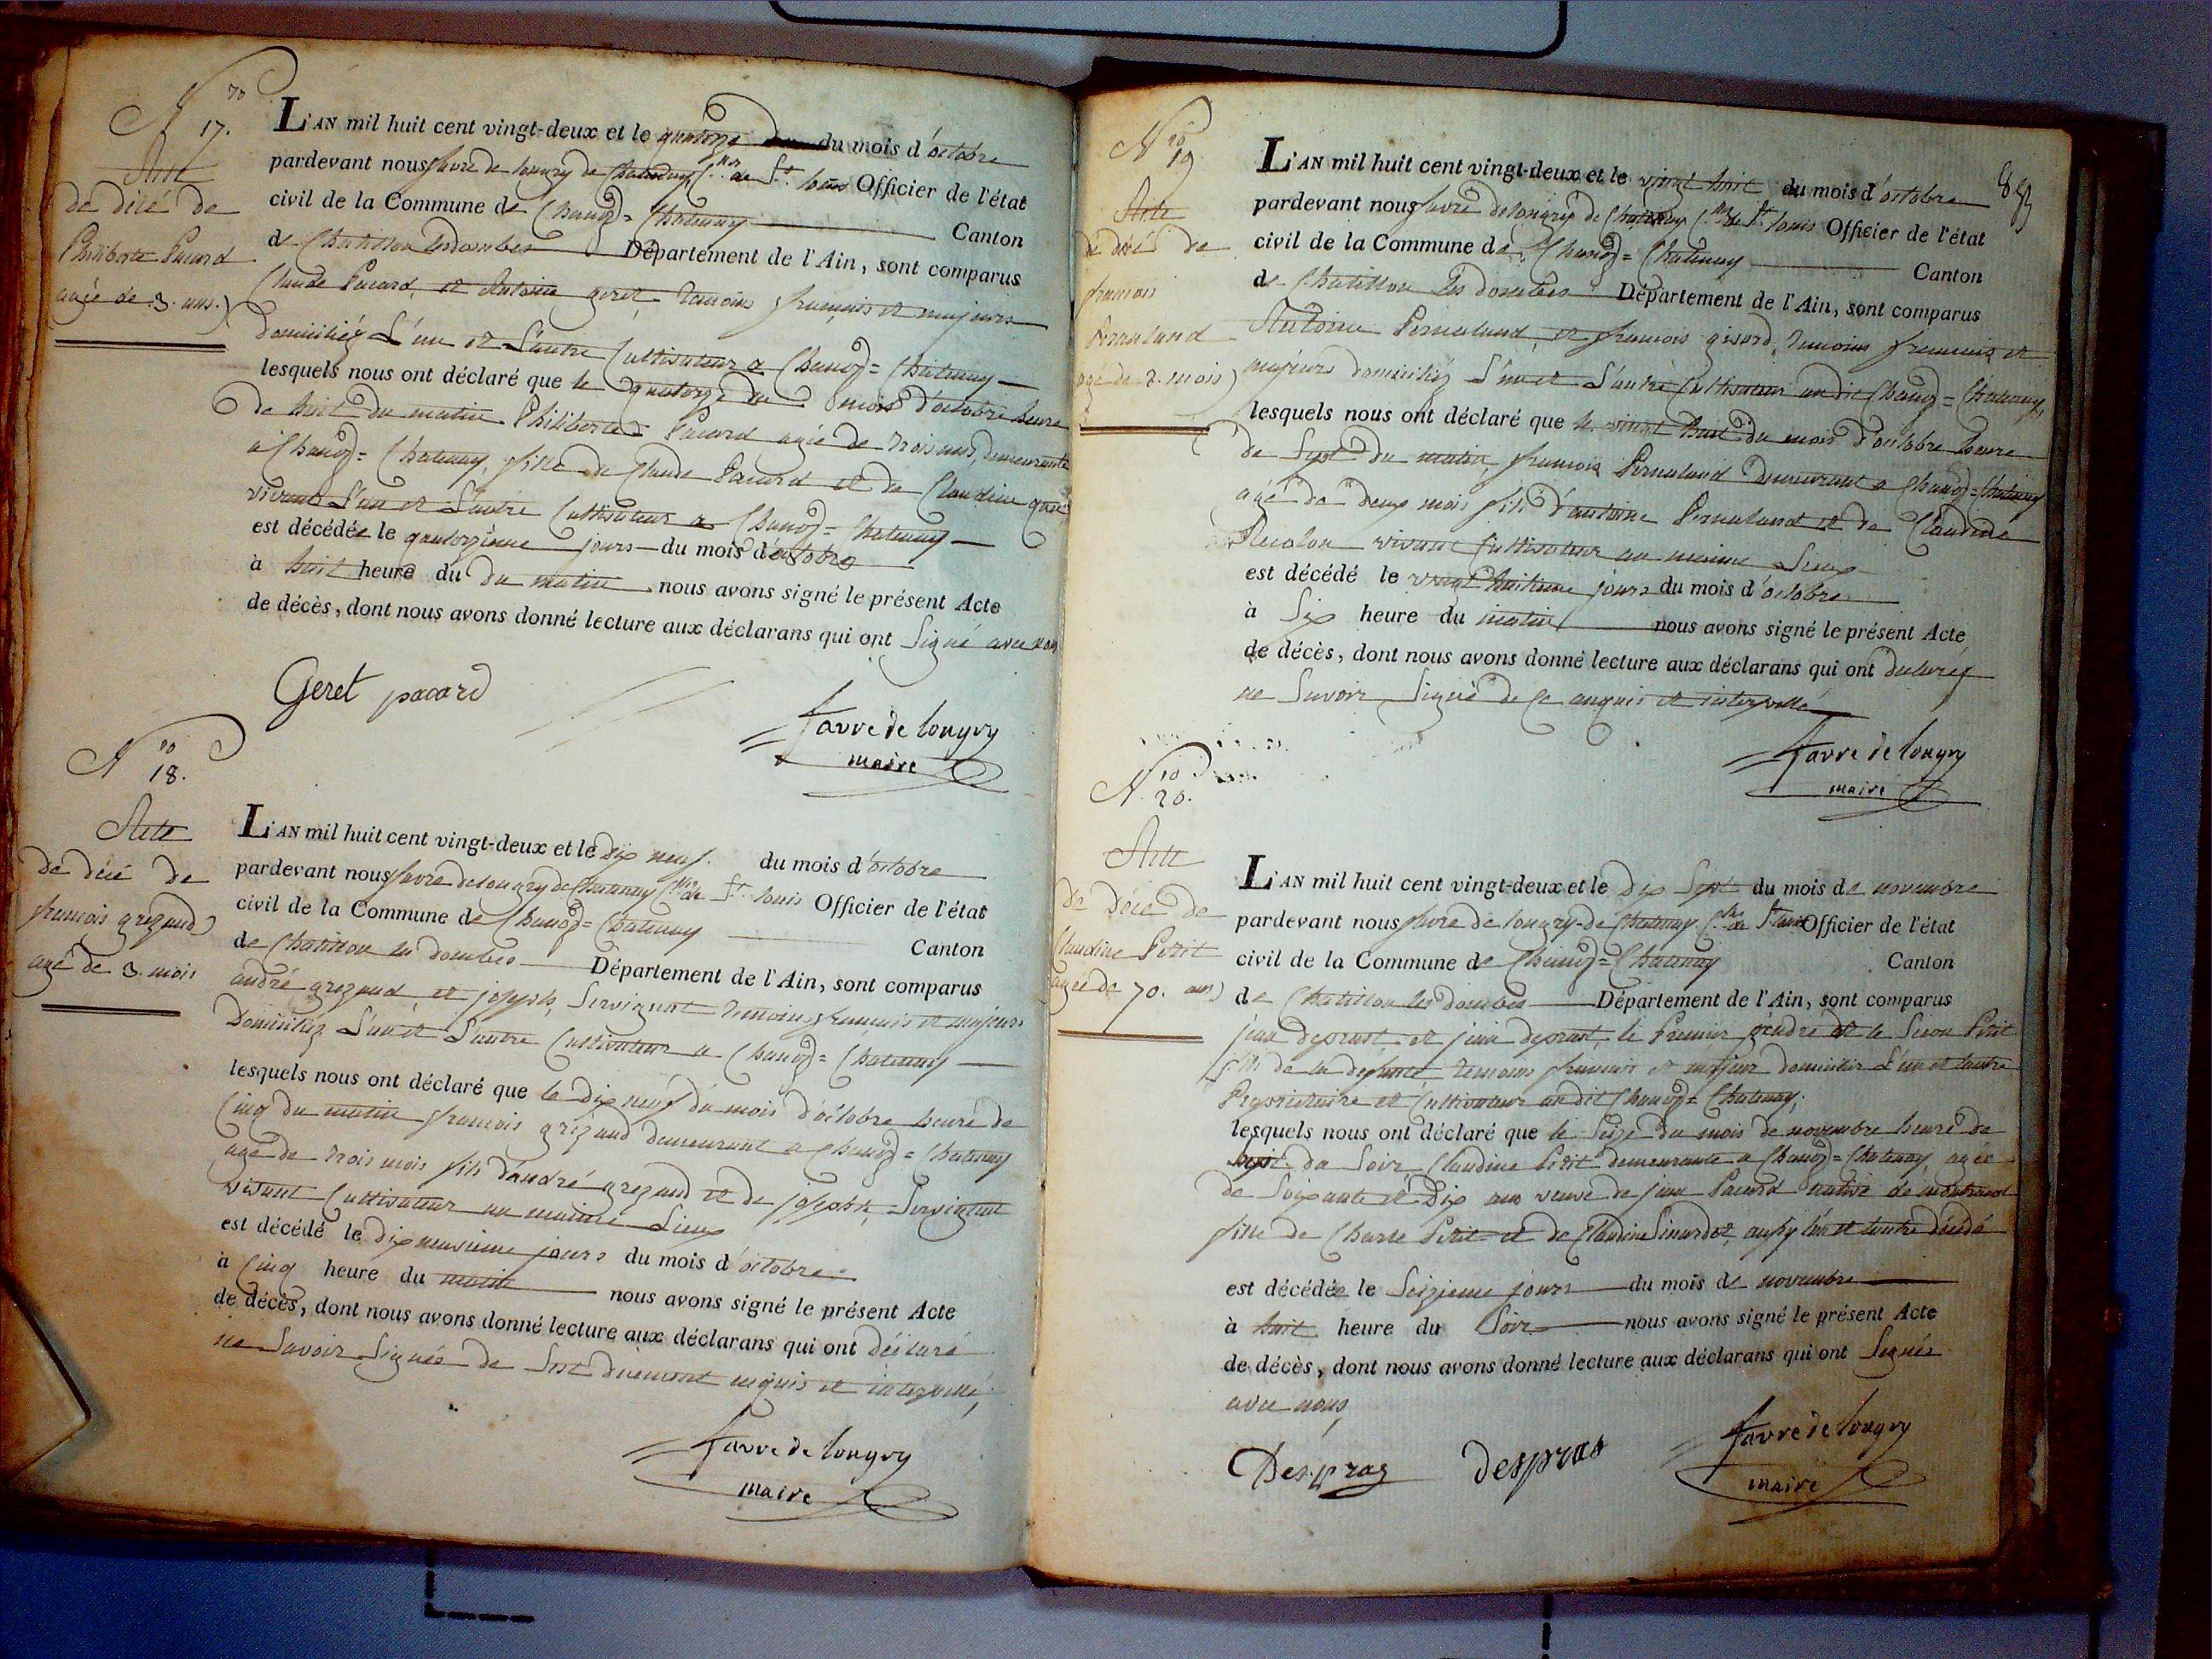 N.ro 17.
Acte
de décé de
Philiberte Pacard
agée de 3. ans.
L'AN mil huit cent vingt-deux et le quatorze du mois d'octobre
pardevant nous favre de longry de Chatenay C.er de St. louis Officier de l'état
civil de la Commune de Chanoz=Chatenay Canton
de Chatillon les dombes Département de l'Ain, sont comparus
Claude Pacard, et Antoine geret, temoins français et majeurs
domiciliéz L'un et L'autre Cultivateur a Chanoz=Chatenay
lesquels nous ont déclaré que le quatorze du mois d'octobre heure
de huit du matin Philiberte Pacard agée de trois ans, demeurante
a Chanoz=Chatenay, fille de Claude Pacard et de Claudine
vivants L'un et L'autre Cultivateur a Chanoz=Chatenay
est décédée le quatorzieme jours du mois d'octobre
à huit heure du du matin nous avons signé le présent Acte
de décès, dont nous avons donné lecture aux déclarans qui ont Signé avec nous
Geret pacard
favre de longry
maire
N.ro 18.
Acte
de décé de
francois grezaud
agé de 3. mois
L'AN mil huit cent vingt-deux et le Dix neuf. du mois d'octobre
pardevant nous favre de longry de Chatenay C.er de St. louis Officier de l'état
civil de la Commune de Chanoz=Chatenay Canton
de Chatillon les dombes Département de l'Ain, sont comparus
andré grezaud, et joseph, Servignat temoins francais et majeurs
Domiciliéz L'un et L'autre Cultivateur a Chanoz=Chatenay
lesquels nous ont déclaré que le dix neuf du mois d'octobre heure de
Cinq du matin francois grezaud demeurant a Chanoz=Chatenay
agé de trois mois fils d'andré grezaud et de josephte, Servignat
vivant Cultivateur au maime Lieux
est décédé le dix neuvieme jours du mois d'octobre
à Cinq heure du matin nous avons signé le présent Acte
de décès, dont nous avons donné lecture aux déclarans qui ont déclaré
ne Savoir Signés de enquis et interpellé,
favre de longry
maire
N.ro 19
Acte
de décé de
francois
Pernaland
agé de 2. mois
L'AN mil huit cent vingt-deux et le vingt huit du mois d'octobre
pardevant nous favre de longry de Chatenay C.er de St. louis Officier de l'état
civil de la Commune de Chanoz=Chatenay Canton
de Chatillon les dombes Département de l'Ain, sont comparus
Antoine Pernaland, et francois gisard, temoins francais et
majeurs domiciliéz L'un et L'autre Cultivateur au dit Chanoz=Chatenay,
lesquels nous ont déclaré que le vingt huit du mois d'octobre heure
de Sept du matin francois Pernaland demeurant a Chanoz=Chatenay
agé de deux mois fils d'antoine Pernaland et de Claudine
vivant Cultivateur au maime Lieux
est décédé le vingt huitieme jours du mois d'octobre
à Six heure du matin nous avons signé le présent Acte
de décès, dont nous avons donné lecture aux déclarans qui ont declaréz
ne Savoir Signé de Ce enquis et interpellé
favre de longry
maire
N.ro 20.
Acte
de Décé de
Claudine Petit
agée de 70. ans
L'AN mil huit cent vingt-deux et le Dix Sept du mois de novembre
pardevant nous favre de longry de Chatenay C.er de St louis Officier de l'état
civil de la Commune de Chanoz=Chatenay Canton
de Chatillon les dombes Département de l'Ain, sont comparus
jean et jean le Premier gendre et le Petit
fils de la defunte temoins francais et majeur domicilier L'un et lautre
Proprietaire et Cultivateur au dit Chanoz=Chatenay,
lesquels nous ont déclaré que le Seize du mois de novembre heure de
du Soir Claudine Petit demeurante a Chanoz=Chatenay agée
de Soixante et Dix ans veuve de jean Pacard native de
fille de Charle Petit et de Claudine aussy l'un et lautre décédé
est décédée le Seizieme jours du mois de novembre
à huit heure du Soir nous avons signé le présent Acte
de décès, dont nous avons donné lecture aux déclarans qui ont Signés
avec nous,
Despraz despras
favre de longry
maire